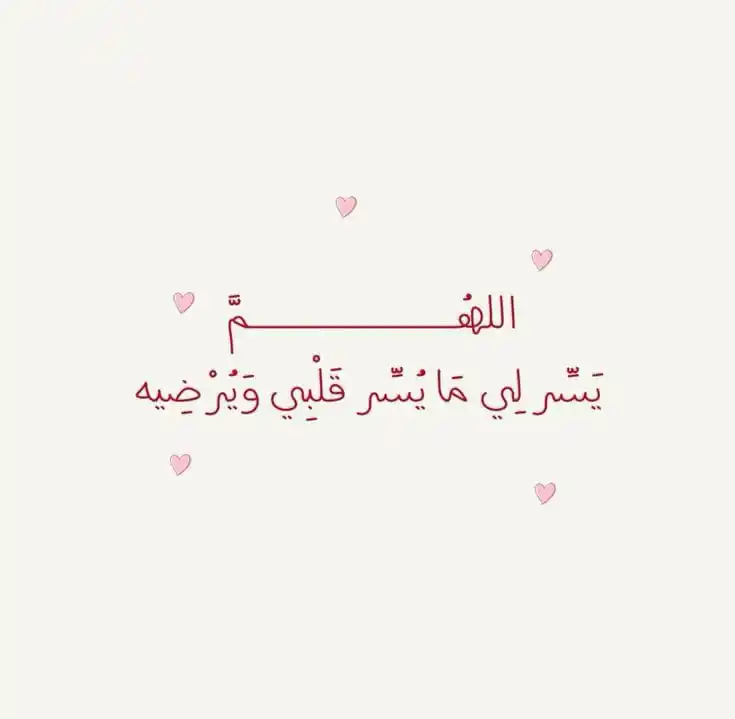 اللهُـــــــــــــــمَّ
يَسِّر لِي مَا يُسِّر قَلْبِي وَيُرْضِيه